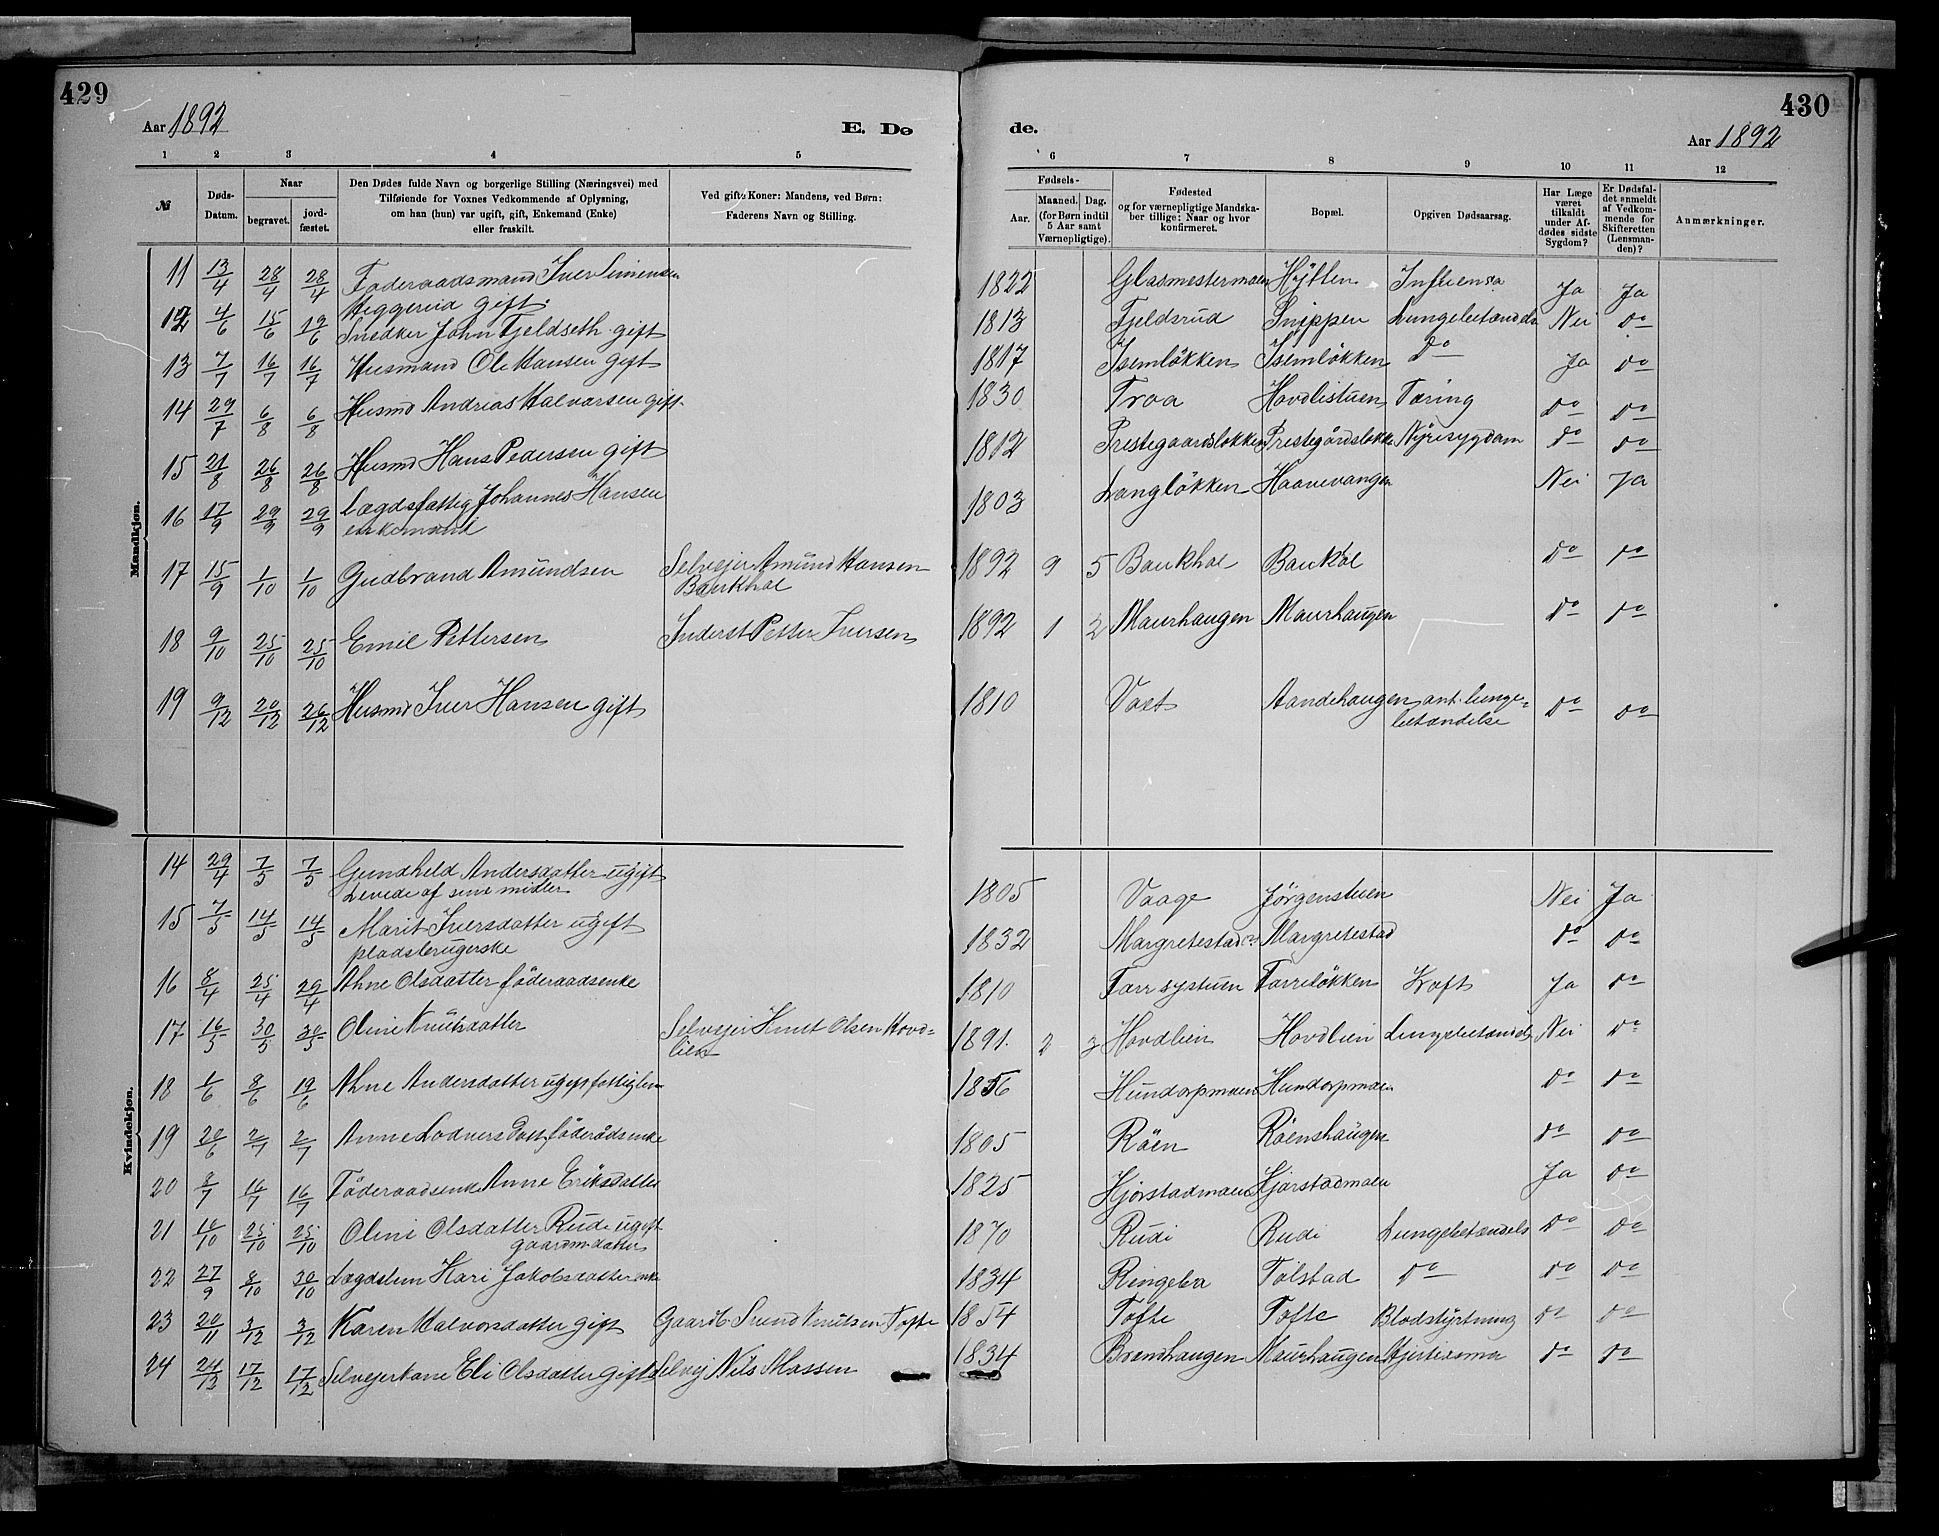 429
Aar 1892
E. Dø
1 2 3 4 5
№
Døds-
Datum.
Naar
begravet.
jord-
fæstet.
Den Dødes fulde Navn og borgerlige Stilling (Næringsvei) med
Tilføiende for Voxnes Vedkommende af Oplysning,
om han (hun) var ugift, gift, Enkemand (Enke)
eller fraskilt.
Ved gifte Koner: Mandens, ved Børn:
Faderens Navn og Stilling.
Mandkjøn.
11 13/4 28/4 28/4 Föderaadsmand Iver Simensen
Heggerud gift.
12 4/6 15/6 19/6 Snedker John Fjeldseth gift
13 7/7 16/7 16/7 Husmand Ole Hansen gift
14 29/7 6/8 6/8 Husmd Andrias Halvarsen gift
15 21/8 26/8 26/8 Husmd Hans Pedersen gift
16 17/9 29/9 29/9 Lægdsfattig Johannes Hansen
enkemand
17 15/9 1/10 1/10 Gudbrand Amundsen Selvejer Amund Hansen
Baukhol
18 9/10 25/10 25/10 Emil Pettersen Inderst Petter Iversen
19 9/12 20/12 26/12 Husmd Iver Hansen gift
Kvindekjøn.
14 29/4 7/5 7/5 Gundhild Andersdatter ugift
Levede af sine midler
15 7/5 14/5 14/5 Marit Iversdatter ugift
pladsbrugerske
16 8/4 25/4 29/4 Ahne Olsdatter föderaadsenke
17 16/5 30/5 30/5 Oline Knutsdatter Selvejer Knut Olsen Hovd=
lien
18 1/6 8/6 19/6 Ahne Andersdatter ugift fattiglem
19 20/6 2/7 2/7 Anne Lodvers Datt föderådsenke
20 8/7 16/7 16/7 Föderaadsenke Anne Eriksdatter
21 10/10 25/10 25/10 Oline Olsdatter Rudi ugift
gaardm.datter
22 27/9 8/10 30/10 Lægdslem Kari Jakobsdatter enke
23 20/11 3/12 3/12 Karen Halvorsdatter gift Gaardb Svend Knutsen Tofte
24 24/12 17/12 17/12 Selvejerkone Eli Olsdatter gift Selvej Nils Massen
430
de.
Aar 1892
6 7 8 9 10 11 12
Fødsels-
Aar.
Maaned. Dag.
(for Børn indtil
5 Aar samt
Værnepligtige).
Fødested
og for værnepligtige Mandska-
ber tillige: Naar og hvor
konfirmeret.
Bopæl.
Opgiven Dødsaarsag.
Har Læge
været
tilkaldt
under Af-
dødes sidste
Sygdom?
Er Dødsfal-
det anmeldt
af Vedkom-
mende for
Skifteretten
(Lensman-
den)?
Anmærkninger.
1822 Glasmestermoen Hytten Influensa Ja Ja
1813 Fjeldsrud Snippen Lungebetændels Nei Do
1817 Isemløkken Isemløkken Do Ja Do
1830 Troa Hovdlistuen Tæring Do Do
1812 Prestegaardsløkken Prestegårdsløkk Nyresygdom Do Do
1803 Langløkken Haavevangen Nei Ja
1892 9 5 Baukhol Baukol Do Do
1892 1 2 Maurhaugen Maurhaugen Do Do
1810 Vaet Aandehaugen ant. lunge=
betændelse Do Do
1805 Vaage Jørgenstuen Nei Ja
1832 Margretestad Margretestad Do Do
1810 Farrsystuen Farreløkken Kræft Ja Do
1891. 2 3 Hovdlien Hovdlien Lungebetændels Nei Do
1856 Hundorpmoen Hundorpmoen Do Do
1805 Röen Röenshaugen Do Do
1825 Hjorstadmoen Hjorstadmoen Ja Do
1870 Rudi Rudi Lungebetændels Do Do
1834 Ringebu Tolstad Do Do Do
1854 Tofte Tofte Blodstyrtning Do Do
1834 Brændhaugen Maurhaugen Hjerteasma Do Do